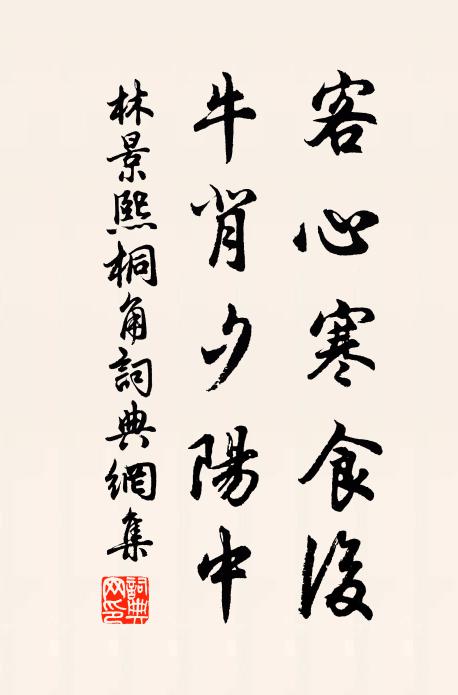 客心寒食後
牛背夕陽中
林景熙桐角詞典網集
詞典網印